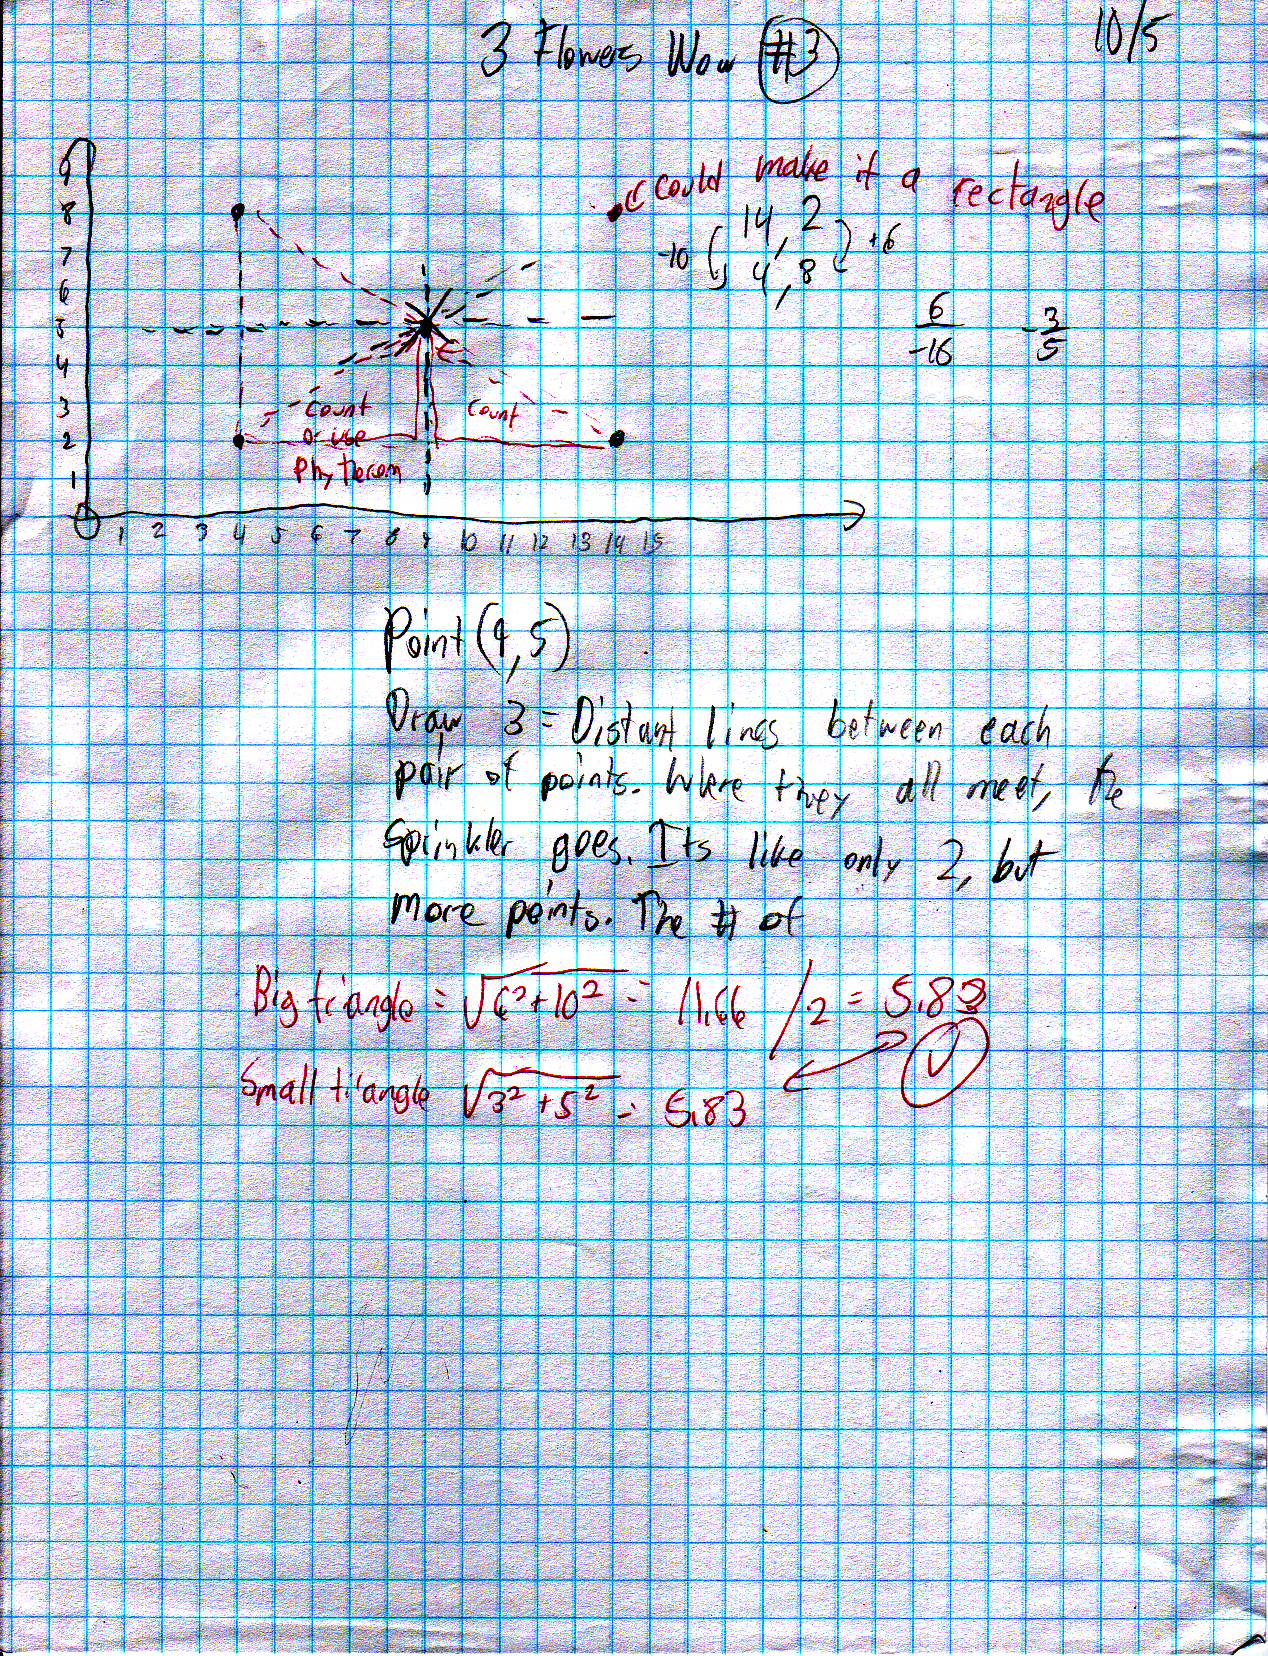 3 Flowers Wow #3
10/5
9
8
7
6
5
4
3
2
1
0 1 2 3 4 5 6 7 8 9 10 11 12 13 14 15
could make it a rectangle
14, 2
-10 +6
4, 8
6/-16 -3/5
count
or use
Phy tierom
count
Point (9,5)
Draw 3 = Distant lines between each
pair of points. Where they all meet, the
sprinkler goes. Its like only 2, but
more points. The # of
Big triangle = √6²+10² = 11.66 /2 = 5.83
Small triangle √3²+5² = 5.83